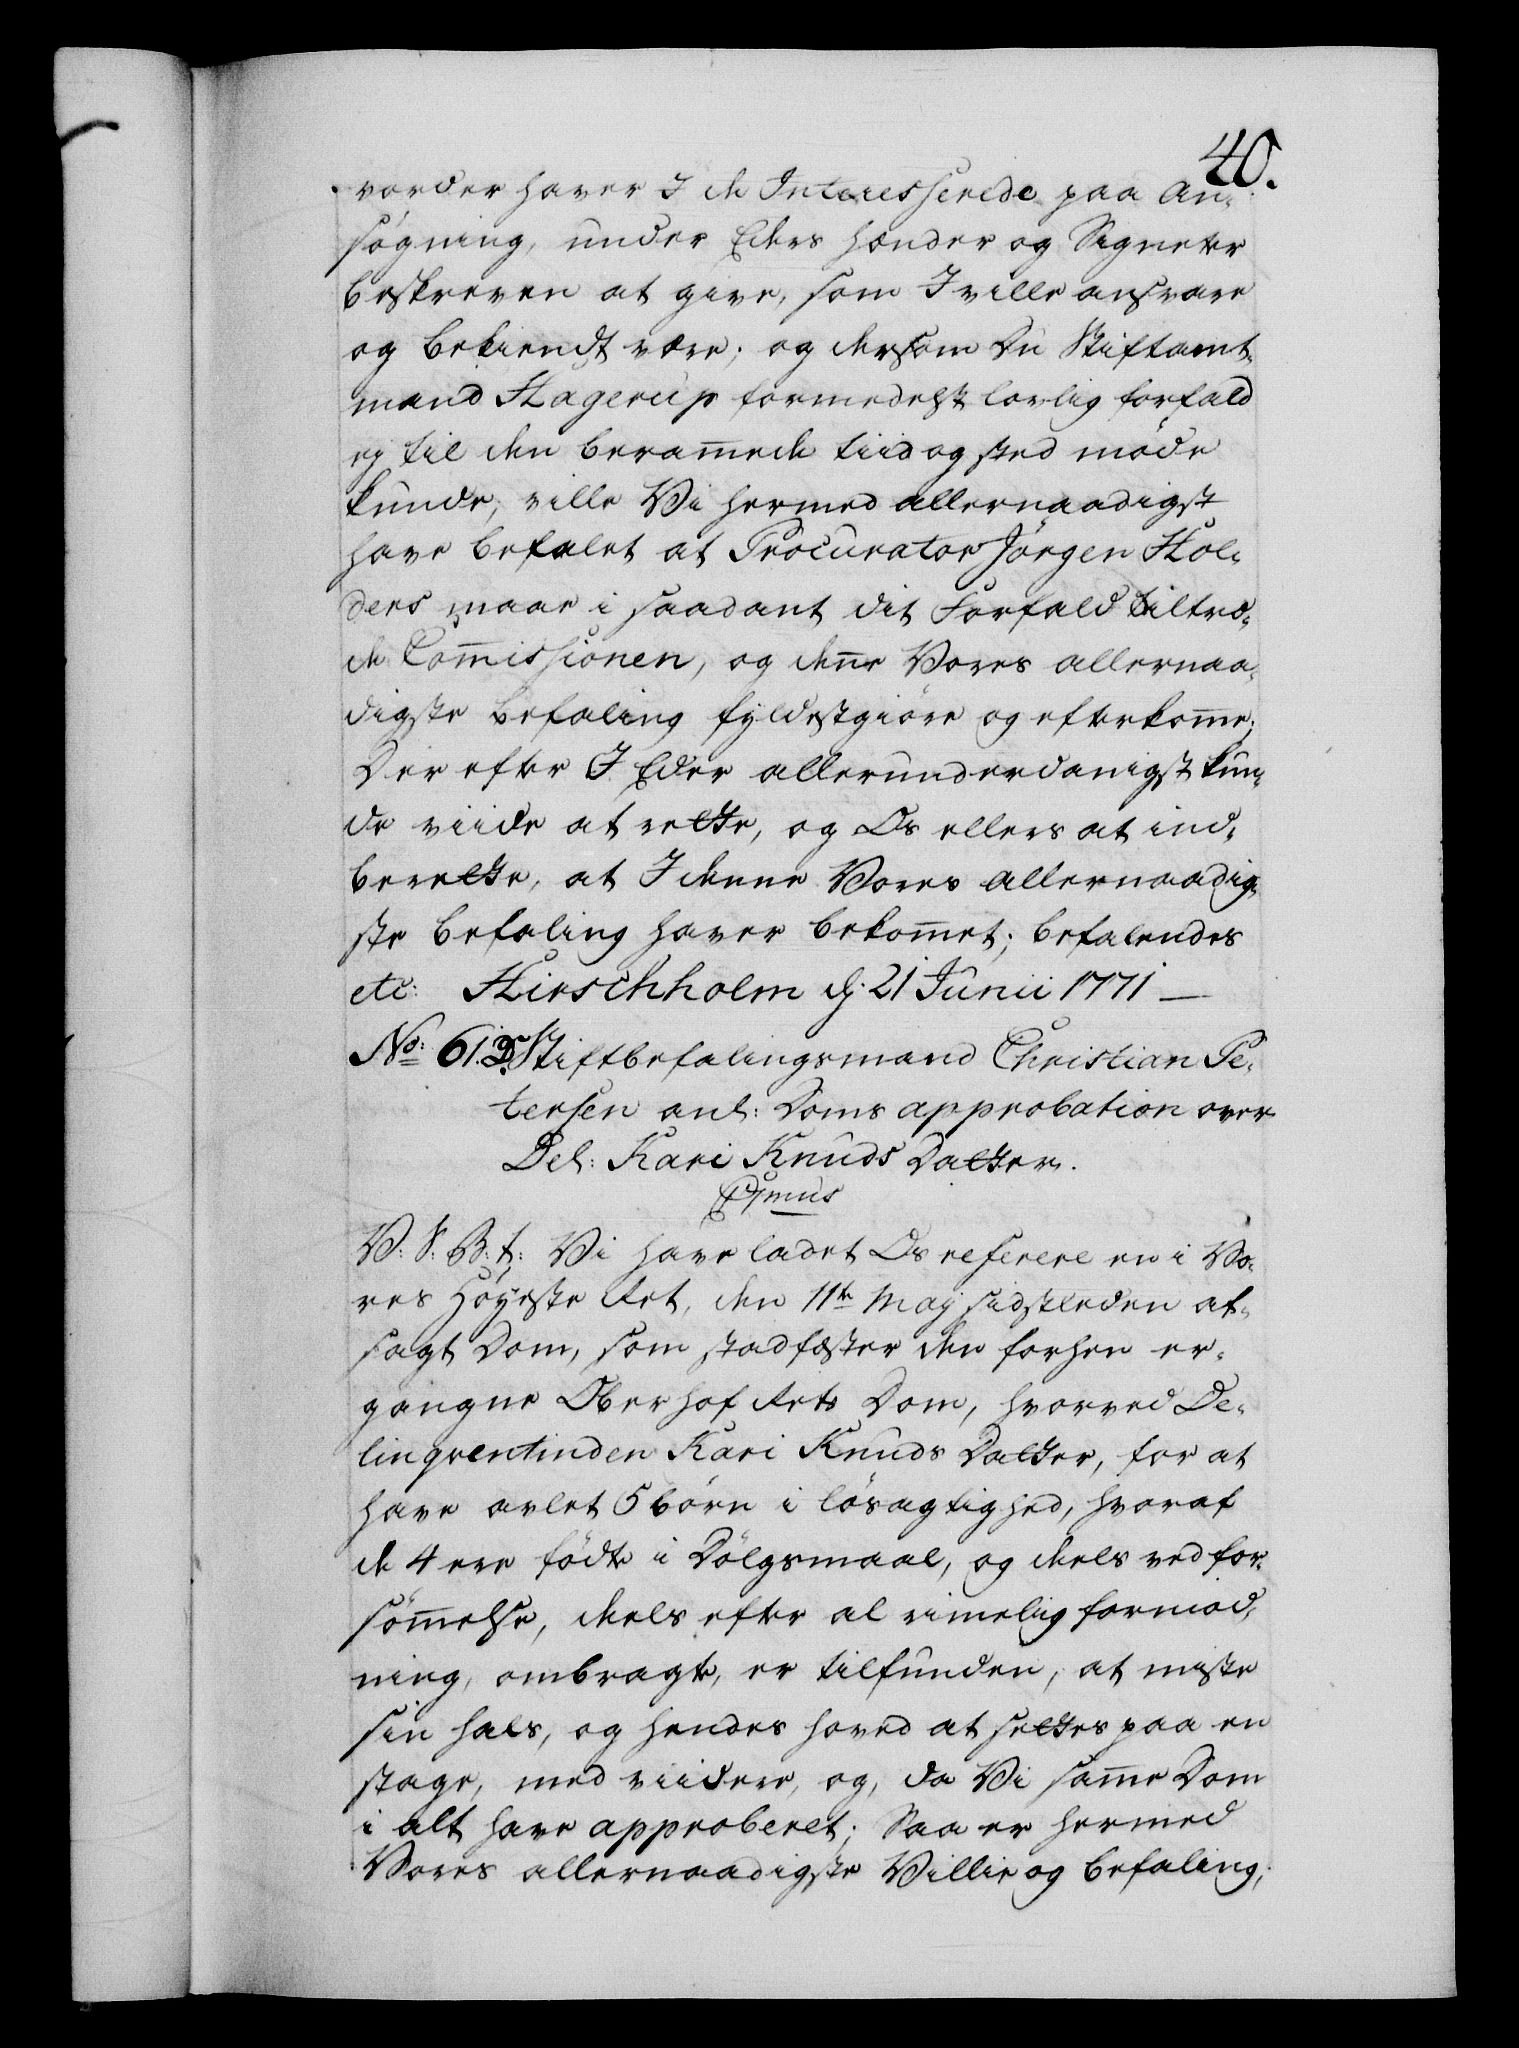 40.
vorder haver I de Interesserede paa An-
søgning, under Eders Hænder og Signeter
beskreven at give, som I ville ansvare
og bekiendt være; og dersom Du Stiftamt-
mand Hagerup formedelst lovlig forfald
ej til den beram̄ede tiid og sted møde
kunde, ville Vi hermed allernaadigst
have befalet at Procurator Jørgen Hol-
ders maae i saadant dit Forfald tiltræ-
de Com̄issionen, og den̄e Vores allernaa-
digste befaling fyldestgiøre og efterkom̄e;
Der efter I Eder allerunderdanigst kun-
de viide at rette, og Os ellers at ind-
berette, at I denne Vores allernaadig-
ste befaling haver bekom̄et; befalendes
etc: Hirschholm d: 21 Junii 1771 —
No: 61. D. Stiftbefalingsmand Christian Pe-
tersen anl: Doms approbation over
Del: Kari Knuds Datter.
V: S: B: t: Vi have ladet Os referere en i Vo-
res Høyeste Ret, den 11te Maj sidstleden af-
sagt Dom, som stadfæster den forhen er-
gangne Oberhof Rets Dom, hvorved De-
linqventinden Kari Knuds Datter, for at
have avlet 5 børn i løsagtighed, hvoraf
de 4 ere fødte i Dølgsmaal, og deels ved for-
søm̄else, deels efter al rimelig formod-
ning, ombragte, er tilfunden, at miste
sin hals, og hendes hoved at settes paa en
stage, med viidere, og, da Vi sam̄e Dom
i alt have approberet; Saa er hermed
Vores allernaadigste Villie og befaling,